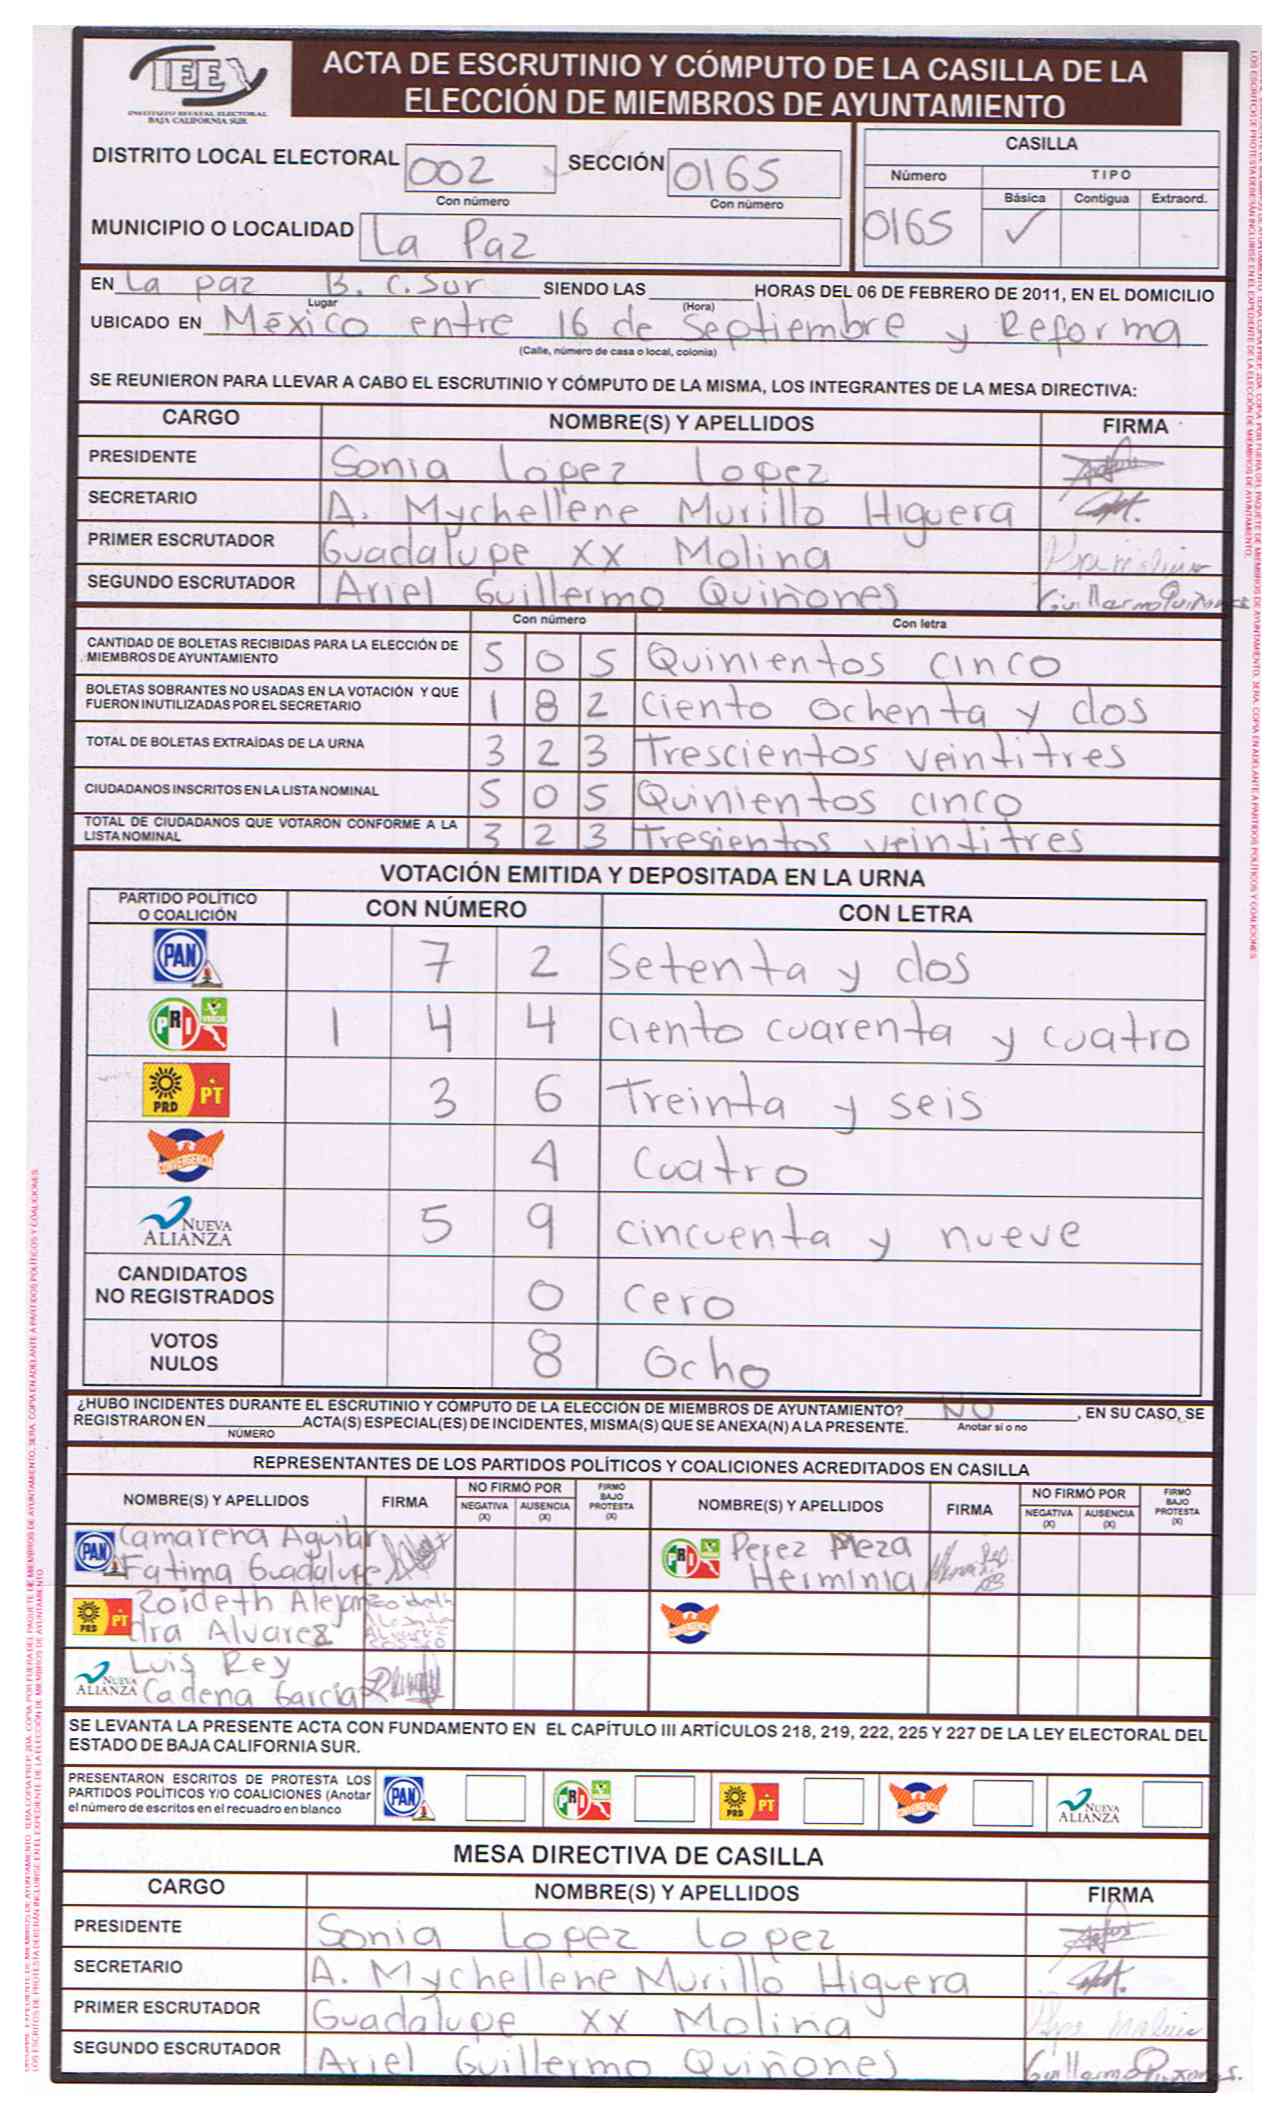 IEE
INSTITUTO ESTATAL ELECTORAL
BAJA CALIFORNIA SUR
ACTA DE ESCRUTINIO Y CÓMPUTO DE LA CASILLA DE LA
ELECCIÓN DE MIEMBROS DE AYUNTAMIENTO
DISTRITO LOCAL ELECTORAL 002 SECCIÓN 0165
Con número Con número
MUNICIPIO O LOCALIDAD La Paz
CASILLA
Número TIPO
Básica Contigua Extraord.
0165 ✓
EN La paz B. C. Sur SIENDO LAS HORAS DEL 06 DE FEBRERO DE 2011, EN EL DOMICILIO
Lugar (Hora)
UBICADO EN México entre 16 de Septiembre y Reforma
(Calle, número de casa o local, colonia)
SE REUNIERON PARA LLEVAR A CABO EL ESCRUTINIO Y CÓMPUTO DE LA MISMA, LOS INTEGRANTES DE LA MESA DIRECTIVA:
CARGO NOMBRE(S) Y APELLIDOS FIRMA
PRESIDENTE Sonia Lopez Lopez
SECRETARIO A. Mychellene Murillo Higuera
PRIMER ESCRUTADOR Guadalupe XX Molina
SEGUNDO ESCRUTADOR Ariel Guillermo Quiñones Guillermo Quiñones
Con número Con letra
CANTIDAD DE BOLETAS RECIBIDAS PARA LA ELECCIÓN DE
MIEMBROS DE AYUNTAMIENTO 5 0 5 Quinientos cinco
BOLETAS SOBRANTES NO USADAS EN LA VOTACIÓN Y QUE
FUERON INUTILIZADAS POR EL SECRETARIO 1 8 2 Ciento ochenta y dos
TOTAL DE BOLETAS EXTRAÍDAS DE LA URNA 3 2 3 Trescientos veintitres
CIUDADANOS INSCRITOS EN LA LISTA NOMINAL 5 0 5 Quinientos cinco
TOTAL DE CIUDADANOS QUE VOTARON CONFORME A LA
LISTA NOMINAL 3 2 3 Tresientos veintitres
VOTACIÓN EMITIDA Y DEPOSITADA EN LA URNA
PARTIDO POLÍTICO
O COALICIÓN CON NÚMERO CON LETRA
PAN 7 2 Setenta y dos
PRI VERDE 1 4 4 ciento cuarenta y cuatro
PRD PT 3 6 Treinta y seis
CONVERGENCIA 4 cuatro
NUEVA ALIANZA 5 9 cincuenta y nueve
CANDIDATOS
NO REGISTRADOS 0 cero
VOTOS
NULOS 8 Ocho
¿HUBO INCIDENTES DURANTE EL ESCRUTINIO Y CÓMPUTO DE LA ELECCIÓN DE MIEMBROS DE AYUNTAMIENTO? NO , EN SU CASO, SE
REGISTRARON EN ACTA(S) ESPECIAL(ES) DE INCIDENTES, MISMA(S) QUE SE ANEXA(N) A LA PRESENTE. Anotar si o no
NÚMERO
REPRESENTANTES DE LOS PARTIDOS POLÍTICOS Y COALICIONES ACREDITADOS EN CASILLA
NOMBRE(S) Y APELLIDOS FIRMA NO FIRMÓ POR NEGATIVA (X) AUSENCIA (X) FIRMÓ BAJO PROTESTA (X) NOMBRE(S) Y APELLIDOS FIRMA NO FIRMÓ POR NEGATIVA (X) AUSENCIA (X) FIRMÓ BAJO PROTESTA (X)
PAN Camarena Aguilar PRI Perez Meza
Fatima Guadalupe Herminia
PRD PT Zoideth Alejan Zoideth
dra Alvarez
NUEVA ALIANZA Luis Rey
Cadena Garcia
SE LEVANTA LA PRESENTE ACTA CON FUNDAMENTO EN EL CAPÍTULO III ARTÍCULOS 218, 219, 222, 225 Y 227 DE LA LEY ELECTORAL DEL
ESTADO DE BAJA CALIFORNIA SUR.
PRESENTARON ESCRITOS DE PROTESTA LOS
PARTIDOS POLÍTICOS Y/O COALICIONES (Anotar
el número de escritos en el recuadro en blanco
PAN PRI PRD PT NUEVA ALIANZA
MESA DIRECTIVA DE CASILLA
CARGO NOMBRE(S) Y APELLIDOS FIRMA
PRESIDENTE Sonia Lopez Lopez
SECRETARIO A. Mychellene Murillo Higuera
PRIMER ESCRUTADOR Guadalupe XX Molina
SEGUNDO ESCRUTADOR Ariel Guillermo Quiñones Guillermo Quiñones